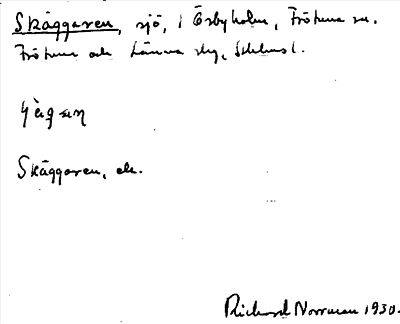 Skäggaren, sjö, i Örbyholm, Frötuna sn.
Frötuna och Länna skg, Sthlms l.
Skäggaren, ek.
Richard Norrman 1930.